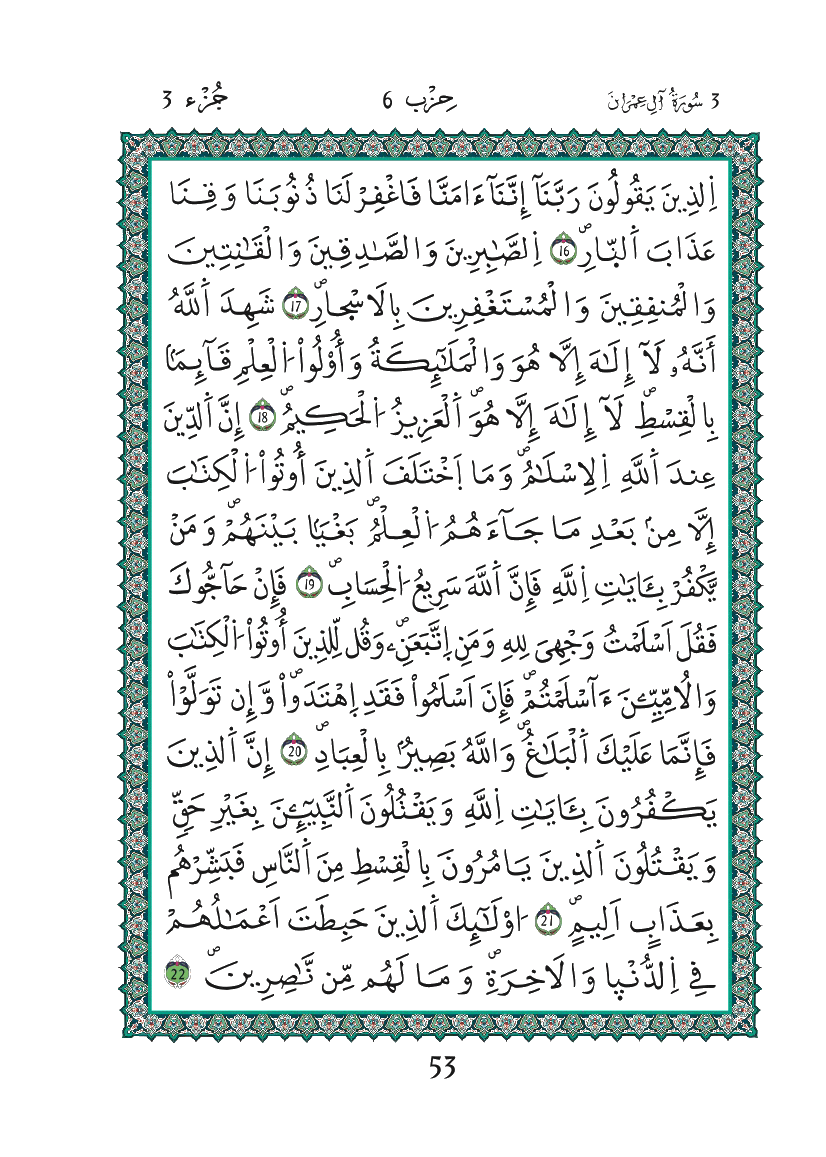 3 سُورَةُ آلِ عِمْرَانَ حِزْب 6 جُزْء 3
اِ۬لذِينَ يَقُولُونَ رَبَّنَآ إِنَّنَآ ءَامَنَّا فَاغْفِرْ لَنَا ذُنُوبَنَا وَقِنَا
عَذَابَ اَ۬لنّ۪ارِۖ 16 اِ۬لصَّٰبِرِينَ وَالصَّٰدِقِينَ وَالْقَٰنِتِينَ
وَالْمُنفِقِينَ وَالْمُسْتَغْفِرِينَ بِالَاسْح۪ارِۖ 17 شَهِدَ اَ۬للَّهُ
أَنَّهُۥ لَآ إِلَٰهَ إِلَّا هُوَ وَالْمَلَٰٓئِكَةُ وَأُوْلُواْ اُ۬لْعِلْمِ قَآئِماَۢ
بِالْقِسْطِۖ لَآ إِلَٰهَ إِلَّا هُوَۖ اَ۬لْعَزِيزُ اُ۬لْحَكِيمُۖ 18 إِنَّ اَ۬لدِّينَ
عِندَ اَ۬للَّهِ اِ۬لِاسْلَٰمُۖ وَمَا اَ۪خْتَلَفَ اَ۬لذِينَ أُوتُواْ اُ۬لْكِتَٰبَ
إِلَّا مِنۢ بَعْدِ مَا جَآءَهُمُ اُ۬لْعِلْمُۖ بَغْياَۢ بَيْنَهُمْۖ وَمَنْ
يَّكْفُرْ بِـَٔايَٰتِ اِ۬للَّهِ فَإِنَّ اَ۬للَّهَ سَرِيعُ اُ۬لْحِسَابِۖ 19 فَإِنْ حَآجُّوكَ
فَقُلَ اَسْلَمْتُ وَجْهِىَ لِلهِ وَمَنِ اِ۪تَّبَعَنِۦۖ وَقُل لِّلذِينَ أُوتُواْ اُ۬لْكِتَٰبَ
وَالُامِّيِّـۧنَ ءَآسْلَمْتُمْۖ فَإِنَ اَسْلَمُواْ فَقَدِ اِ۪هْتَدَواْۖ وَّإِن تَوَلَّوْاْ
فَإِنَّمَا عَلَيْكَ اَ۬لْبَلَٰغُۖ وَاللَّهُ بَصِيرُۢ بِالْعِبَادِۖ 20 إِنَّ اَ۬لذِينَ
يَكْفُرُونَ بِـَٔايَٰتِ اِ۬للَّهِ وَيَقْتُلُونَ اَ۬لنَّبِيٓـِٕۧنَ بِغَيْرِ حَقّٖ
وَيَقْتُلُونَ اَ۬لذِينَ يَامُرُونَ بِالْقِسْطِ مِنَ اَ۬لنَّاسِ فَبَشِّرْهُم
بِعَذَابٍ اَلِيمٍۖ 21 اُوْلَٰٓئِكَ اَ۬لذِينَ حَبِطَتَ اَعْمَٰلُهُمْ
فِے اِ۬لدُّنْي۪ا وَالَاخِرَةِۖ وَمَا لَهُم مِّن نَّٰصِرِينَۖ 22
53